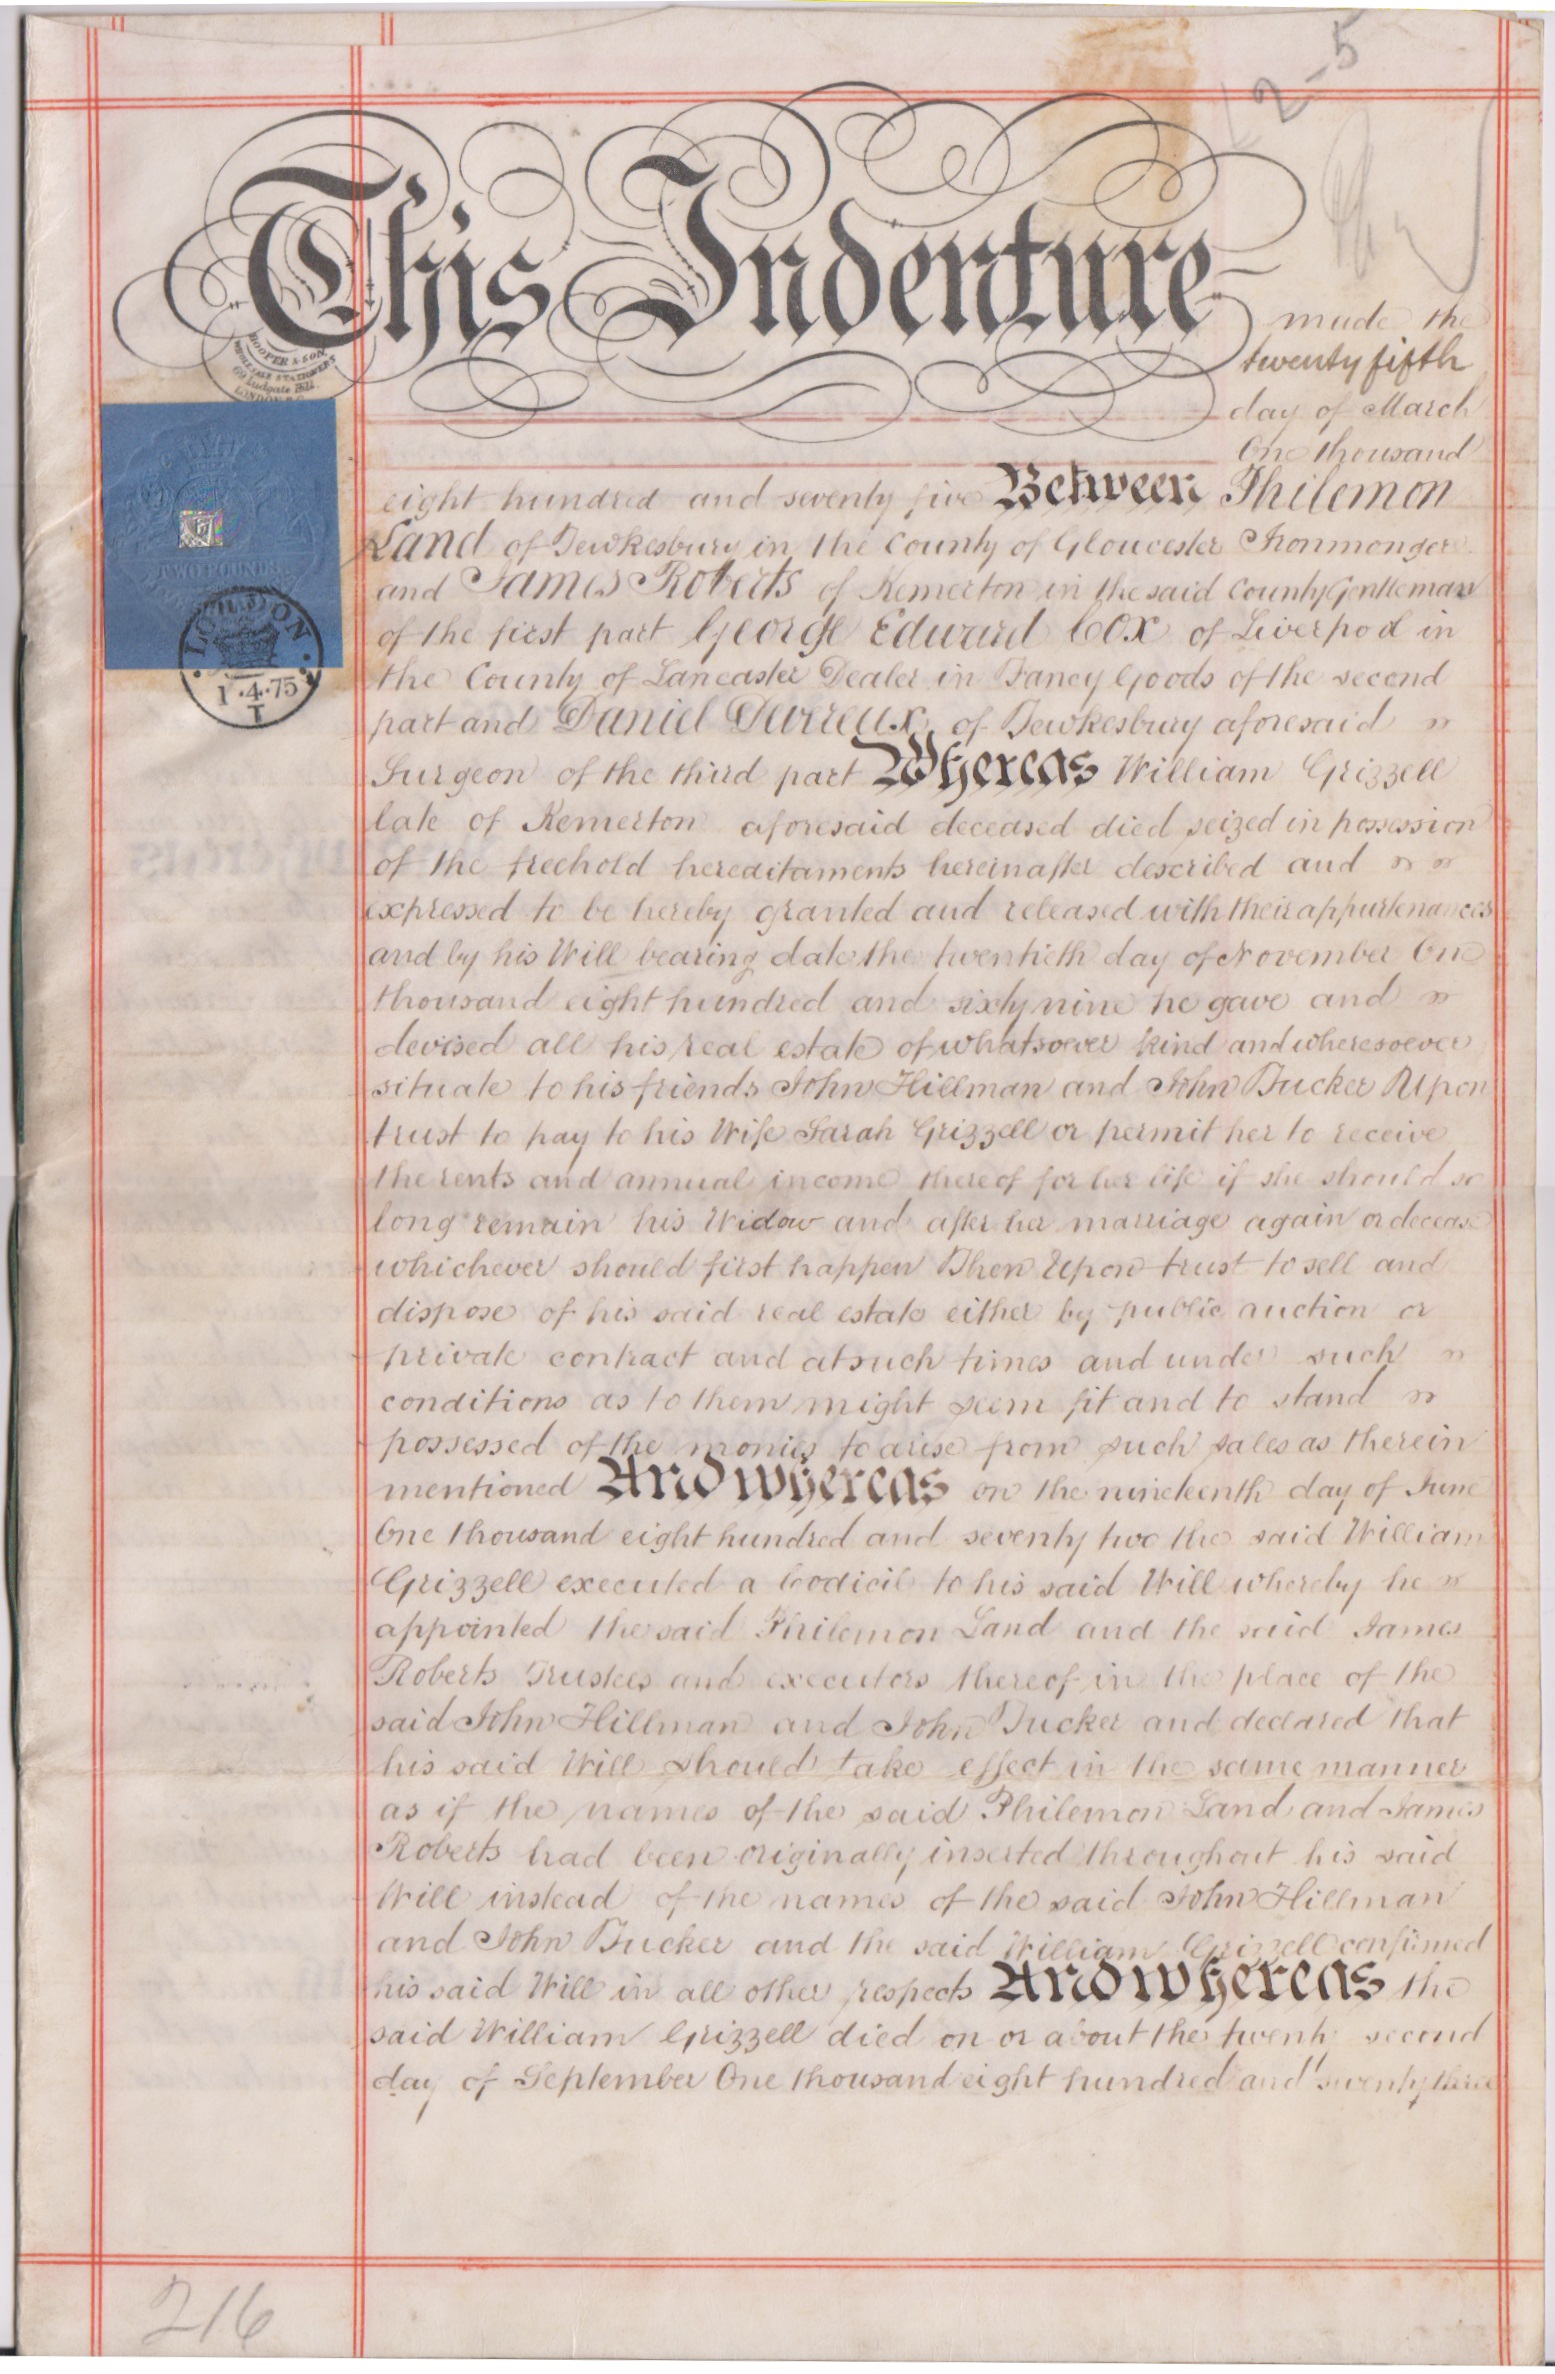 2-5
This Indenture
made the
twenty fifth
day of March
One thousand
HOOPER & SON,
WHOLESALE STATIONERS
69 Ludgate Hill
LONDON E.C.
eight hundred and seventy five Between Philemon
Land of Tewkesbury in the County of Gloucester Ironmonger
and James Roberts of Kemerton in the said County Gentleman
TWO POUNDS
of the first part George Edward Cox of Liverpool in
LONDON
the County of Lancaster Dealer in Fancy Goods of the second
1·4·75
T
part and Daniel Devereux of Tewkesbury aforesaid
Surgeon of the third part Whereas William Grizzell
late of Kemerton aforesaid deceased died seized in possession
of the freehold hereditaments hereinafter described and
expressed to be hereby granted and released with their appurtenances
and by his Will bearing date the twentieth day of November One
thousand eight hundred and sixty nine he gave and
devised all his real estate of whatsoever kind and wheresoever
situate to his friends John Hillman and John Tucker Upon
trust to pay to his Wife Sarah Grizzell or permit her to receive
the rents and annual income thereof for her life if she should so
long remain his Widow and after her marriage again or decease
whichever should first happen Then Upon trust to sell and
dispose of his said real estate either by public auction or
private contract and at such times and under such
conditions as to them might seem fit and to stand
possessed of the monies to arise from such sales as therein
mentioned And whereas on the nineteenth day of June
One thousand eight hundred and seventy two the said William
Grizzell executed a Codicil to his said Will whereby he
appointed the said Philemon Land and the said James
Roberts Trustees and executors thereof in the place of the
said John Hillman and John Tucker and declared that
his said Will should take effect in the same manner
as if the names of the said Philemon Land and James
Roberts had been originally inserted throughout his said
Will instead of the names of the said John Hillman
and John Tucker and the said William Grizzell confirmed
his said Will in all other respects And whereas the
said William Grizzell died on or about the twenty second
day of September One thousand eight hundred and seventy three
216